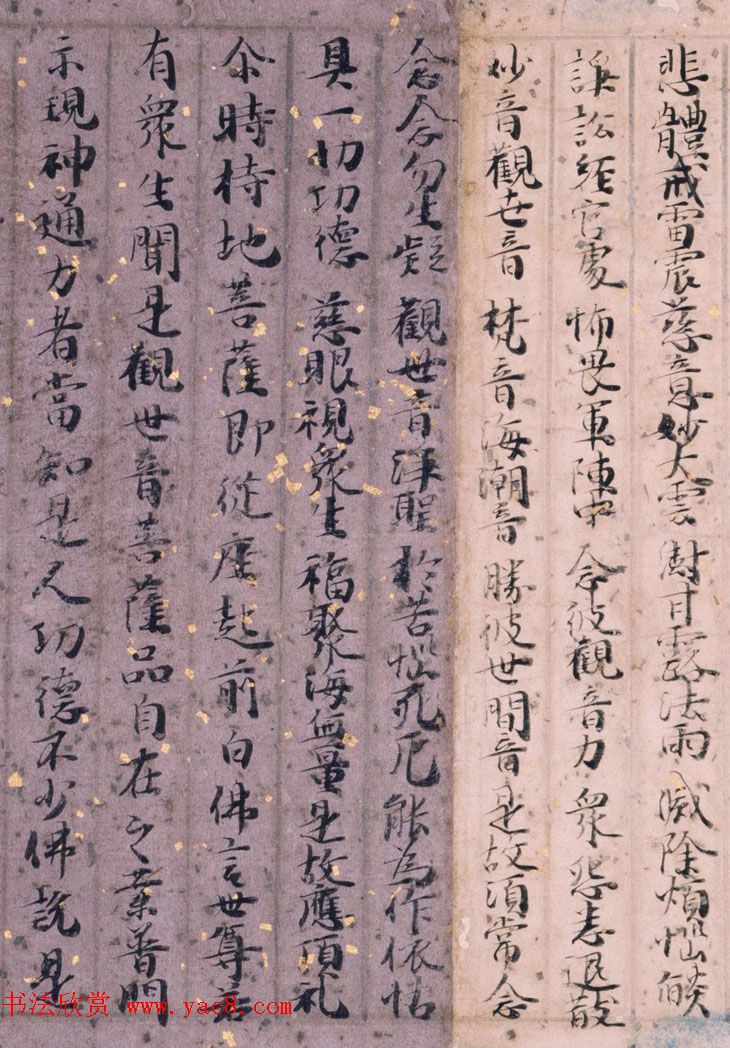 悲體戒雷震慈意妙大雲澍甘露法雨滅除煩惱燄
諍訟經官處怖畏軍陣中念彼觀音力衆怨悉退散
妙音觀世音梵音海潮音勝彼世間音是故須常念
念念勿生疑觀世音淨聖於苦惱死厄能為作依怙
具一切功德慈眼視衆生福聚海無量是故應頂礼
尒時持地菩薩即從座起前白佛言世尊若
有衆生聞是觀世音菩薩品自在之業普門
示現神通力者當知是人功德不少佛說是
书法欣赏 www.yac8.com